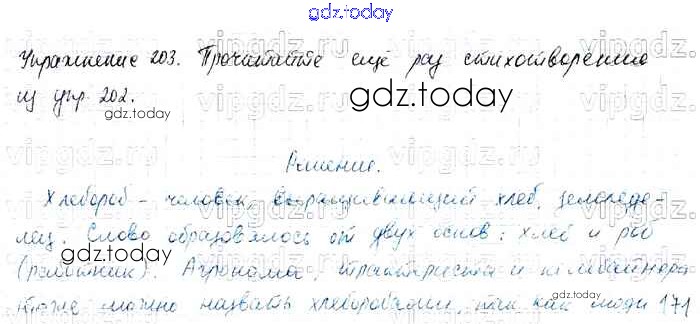 gdz.today
Упражнение 203. Прочитайте ещё раз стихотворение
из упр 202.
gdz.today
Решение.
Хлебороб - человек, выращивающий хлеб, земледе-
лец. Слово образовалось от двух основ: хлеб и роб
(работник). Агронома, тракториста и комбайнера
тоже можно назвать хлеборобами, так как люди 171
gdz.today